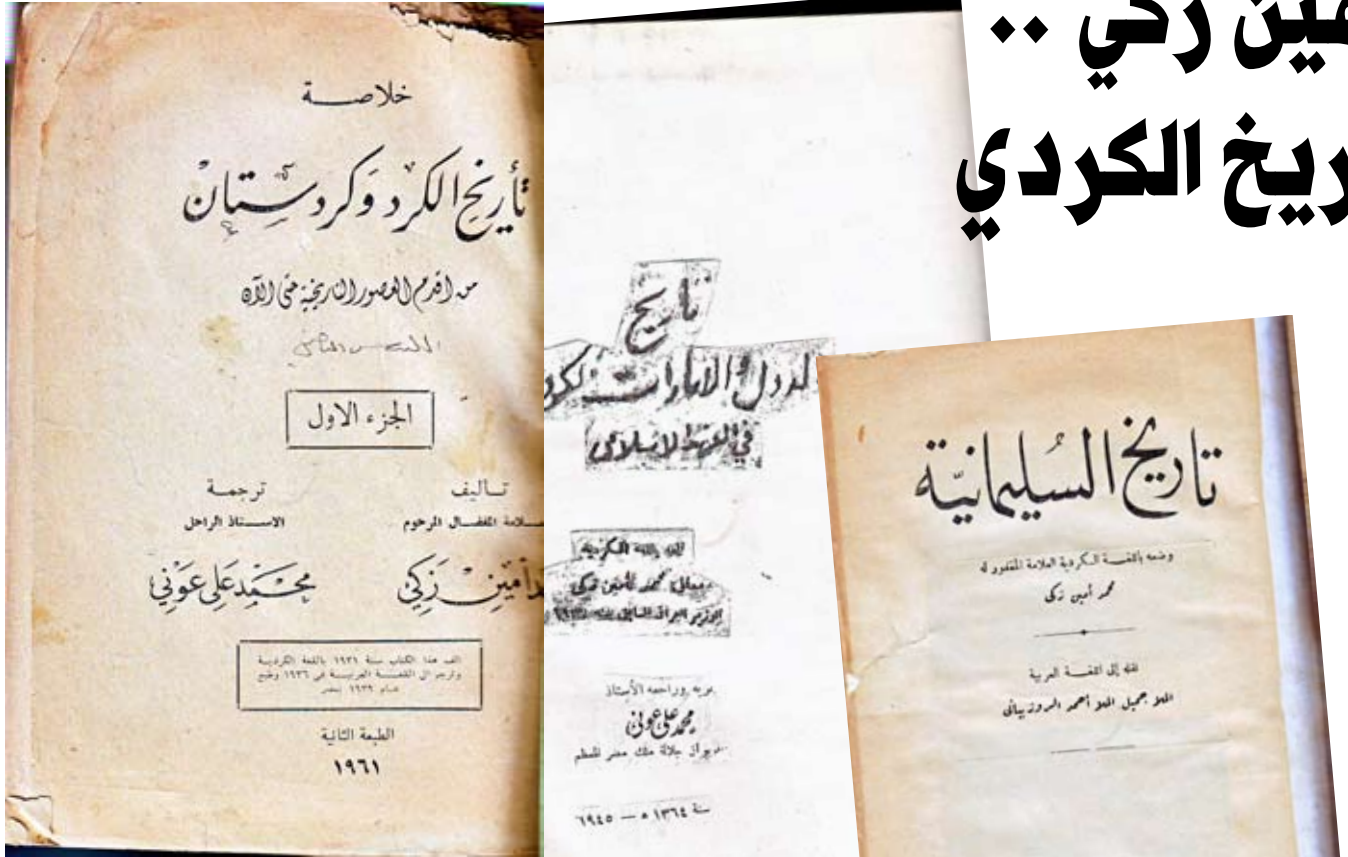 مين زكي ..
ريخ الكردي
خلاصـــة
تأريخ الكرد وكردستان
من اقدم العصور التاريخية حتى الآن
الجزء الاول
تــأليف
ـلامة المفضــال المرحوم
ـد أمين زكي
ترجمــة
الاســـتاذ الراحل
محمد علي عوني
الف هذا الكتاب سنة ١٩٣١ باللغة الكردية
وترجم الى اللغــة العربيــة في ١٩٣٦ وطبع
عــام ١٩٣٩ بمصر
الطبعة الثانية
١٩٦١
تاريخ
الدول والامارات الكرد
في العهد الاسلامي
الفه باللغة الكردية
معالي محمد أمين زكي
الوزير العراقي السابق سنة
عربه وراجعه الأستاذ
محمد علي عوني
بديوان جلالة ملك مصر المعظم
سنة ١٣٦٤ ه — ١٩٤٥
تاريخ السليمانية
وضعه باللغـــة الـكردية العلامة المغفور له
محمد أمين زكى
نقله إلى اللغــة العربية
الملا جميل الملا أحمد الروزبيانى